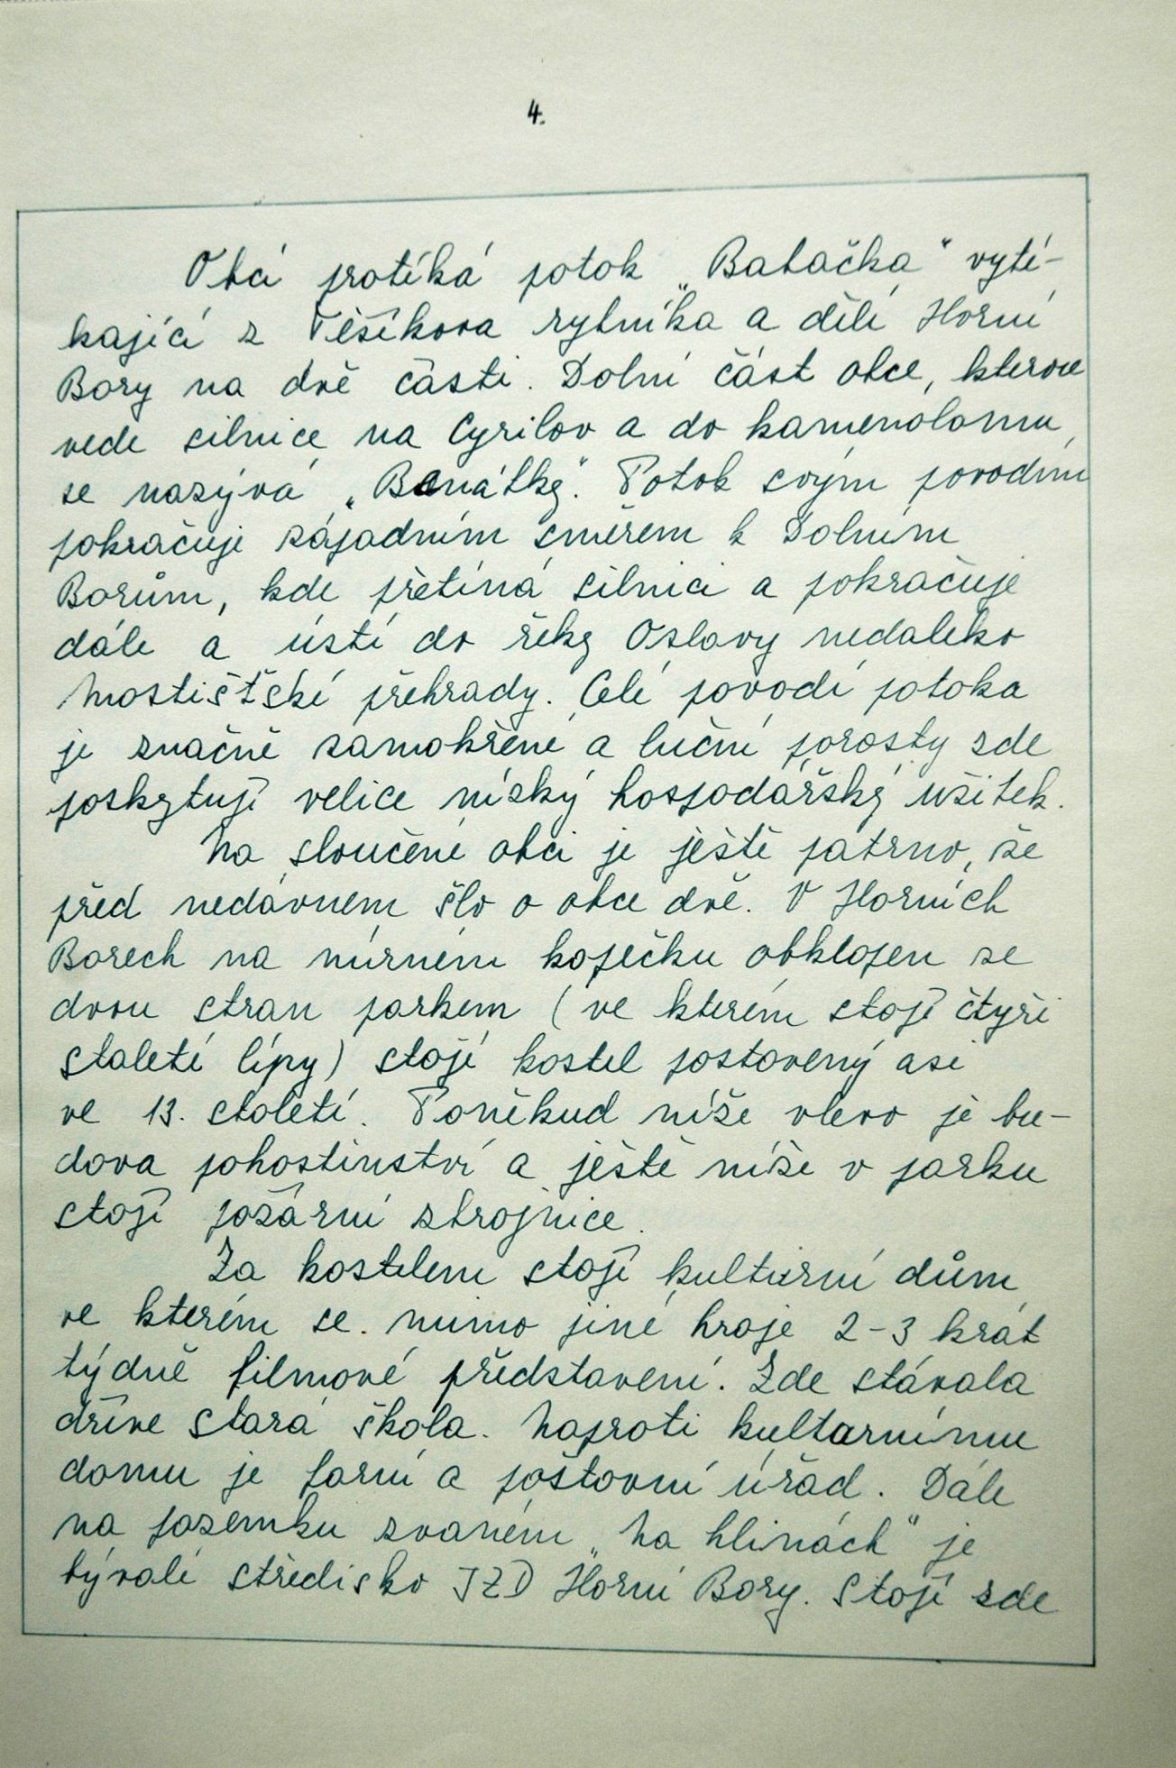 4.
Obcí protéká potok „Babačka" vyté-
kající z Těšíkova rybníka a dělí Horní
Bory na dvě části. Dolní část obce, kterou
vede silnice na Cyrilov a do kamenolomu,
se nazývá „Benátky". Potok svým povodím
pokračuje západním směrem k Dolním
Borům, kde přetíná silnici a pokračuje
dále a ústí do řeky Oslavy nedaleko
Mostištské přehrady. Celé povodí potoka
je značně zamokřené a luční porosty zde
poskytují velice nízký hospodářský užitek.
Na sloučené obci je ještě patrno, že
před nedávnem šlo o obce dvě. V Horních
Borech na mírném kopečku obklopen ze
dvou stran parkem (ve kterém stojí čtyři
staleté lípy) stojí kostel postavený asi
ve 13. století. Poněkud níže vlevo je bu-
dova pohostinství a ještě níže v parku
stojí požární zbrojnice.
Za kostelem stojí kulturní dům,
ve kterém se. mimo jiné hraje 2-3 krát
týdně filmové představení. Zde stávala
dříve stará škola. Naproti kulturnímu
domu je farní a poštovní úřad. Dále
na pozemku zvaném „Na hlinách" je
bývalé středisko JZD Horní Bory. Stojí zde